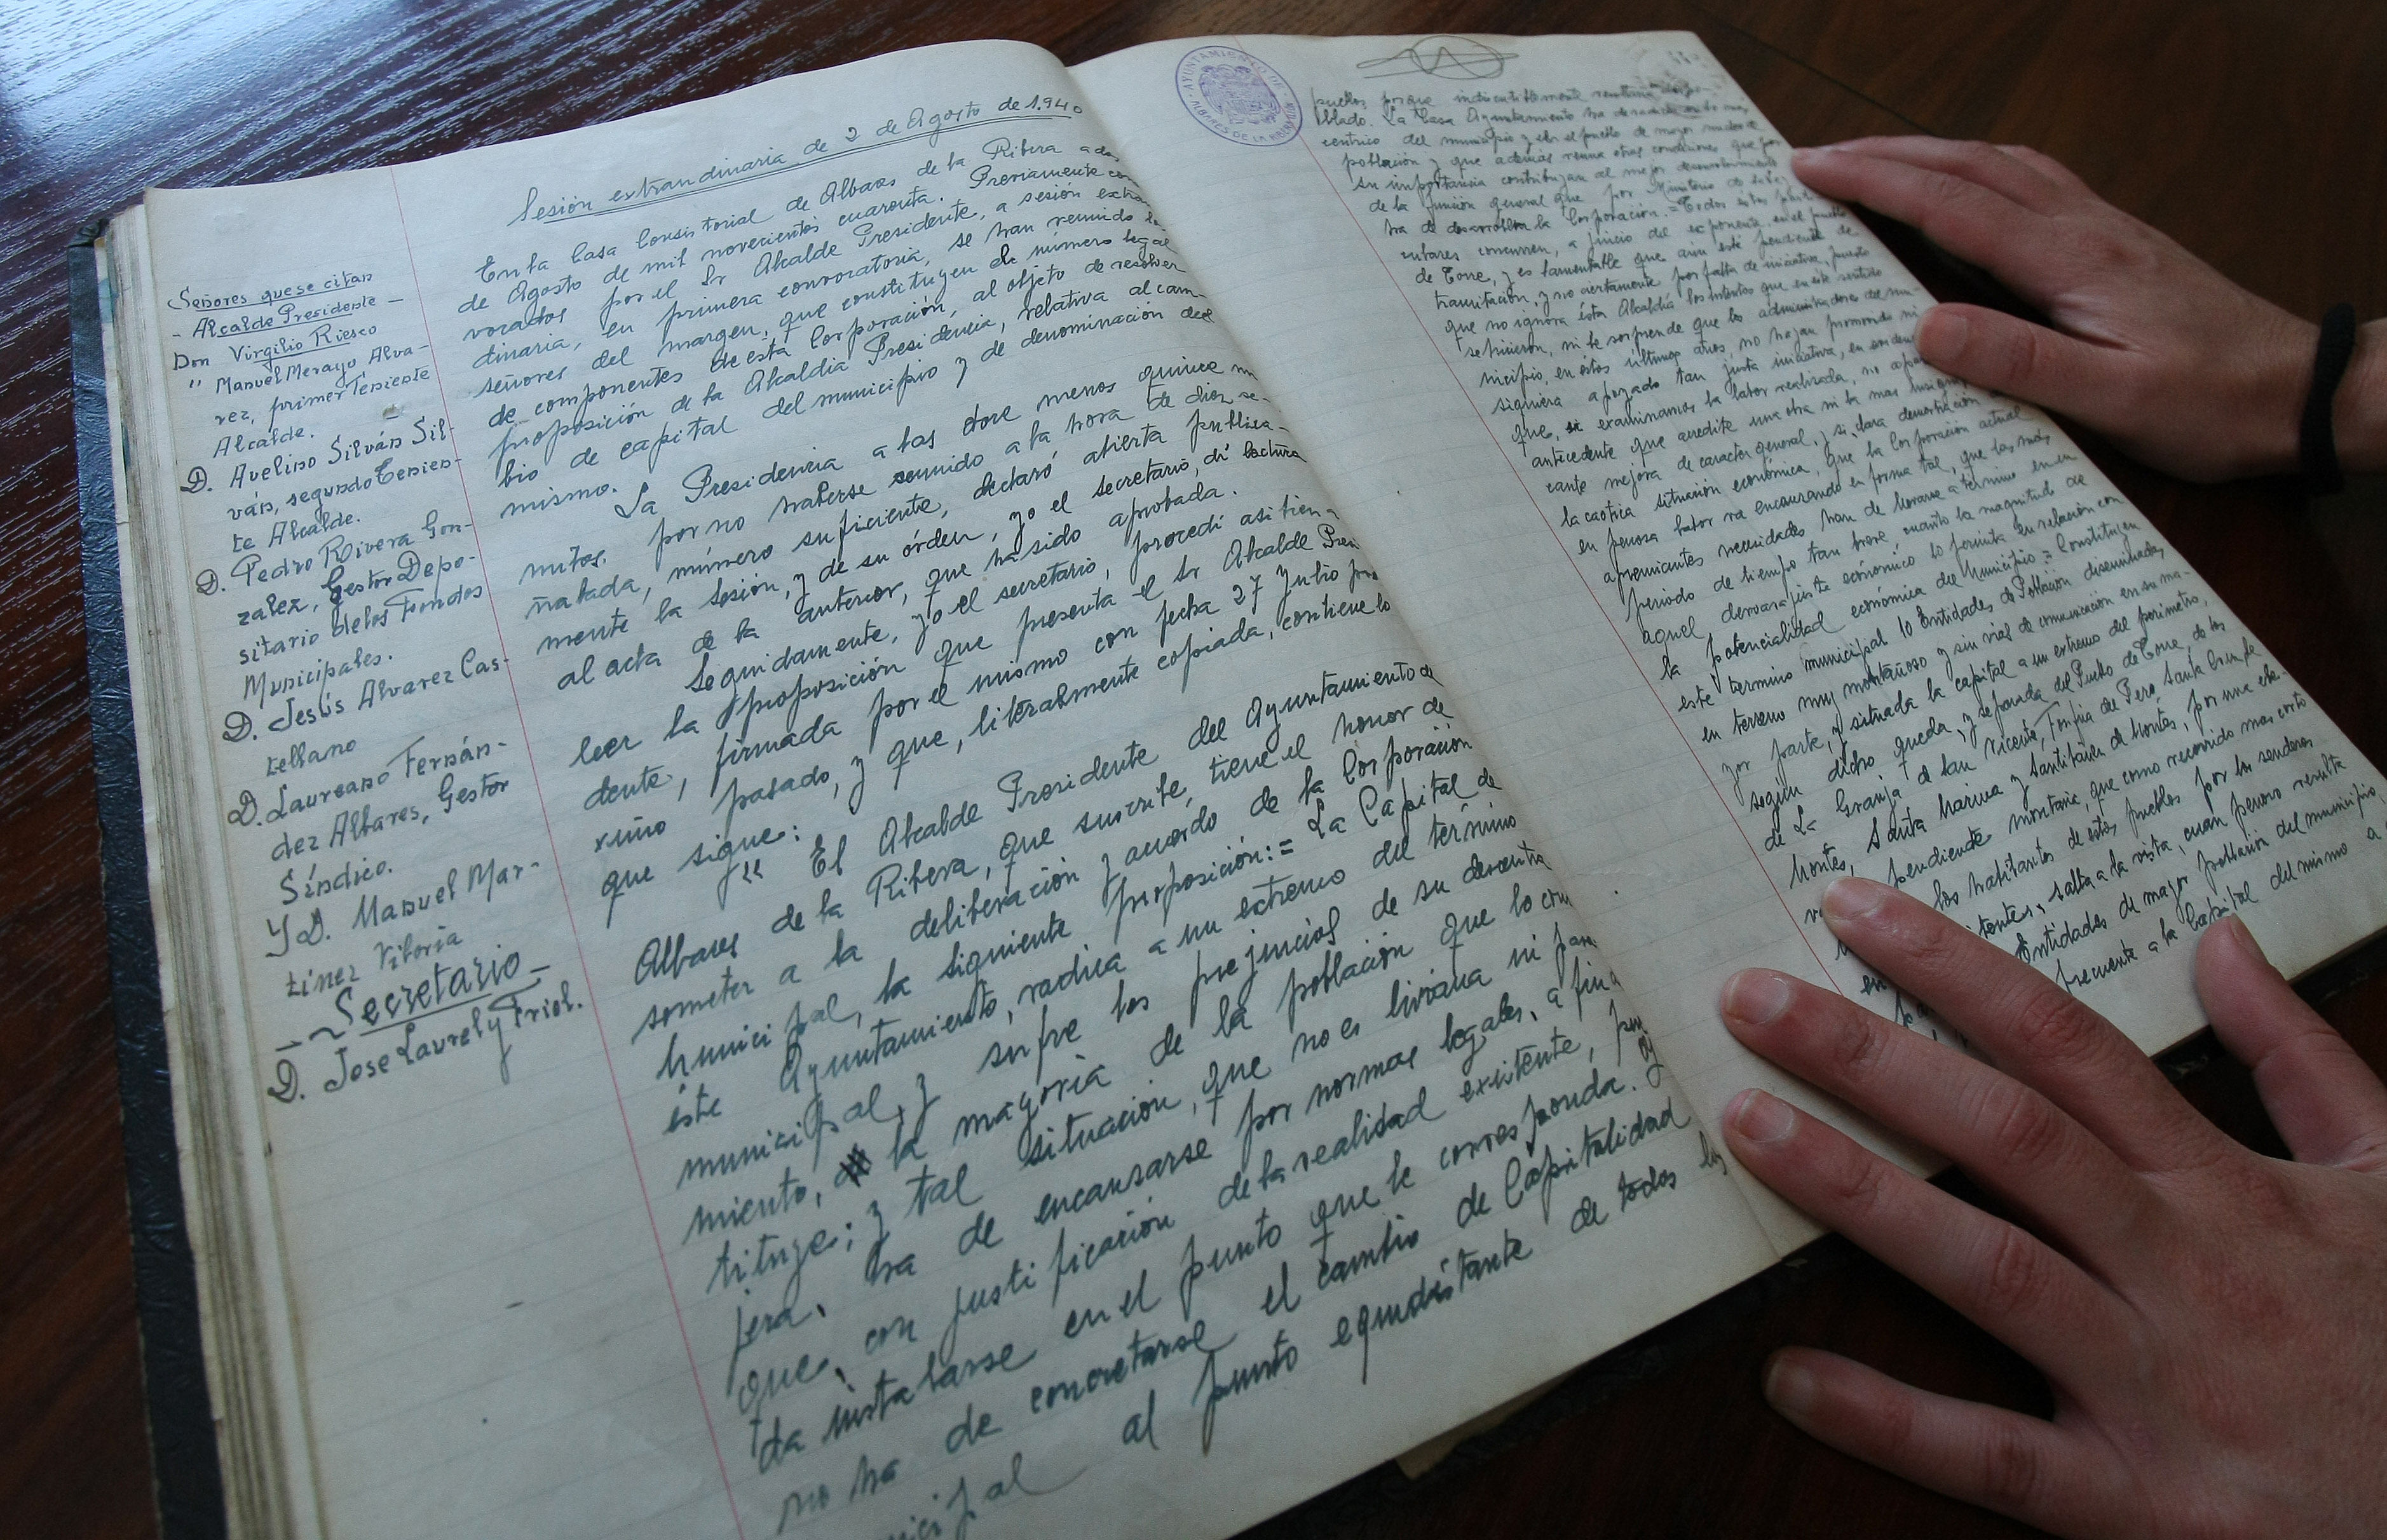 Sesión extrandinaria de 2 de Agosto de 1.940
Señores que se citan
- Alcalde Presidente -
Don Virgilio Riesco
" Manuel Merayo Alva-
rez, primer Teniente
Alcalde.
D. Avelino Silván Sil-
ván, segundo Tenien-
te Alcalde.
D. Pedro Rivera Gon-
zalez, Gestor Depo-
sitario de los Fondos
Municipales.
D. Jesús Alvarez Cas-
tellano
D. Laureano Fernán-
dez Albares, Gestor
Síndico.
Y D. Manuel Mar-
tínez Vitoria
- Secretario -
D. Jose Laurel y Friol.
En la Casa Consistorial de Albares de la Ribera a dos
de Agosto de mil novecientos cuarenta. Previamente con-
vocados por el Sr Alcalde Presidente, a sesión extra
dinaria, en primera convocatoria, se han reunido lo
señores del margen, que constituyen el número legal
de componentes de esta Corporación, al objeto de resolver
proposición de la Alcaldia Presidencia, relativa al cam-
bio de capital del municipio y de denominación del
mismo.
La Presidencia a las doce menos quince mi
nutos. por no haberse reunido a la hora de dias se-
ñalada, número suficiente, declaró abierta publica-
mente la sesión, y de su órden, yo el secretario, dí lectura
al acta de la anterior, que ha sido aprobada.
Seguidamente, yo el secretario, procedí asi tien a
leer la proposición que presenta el Sr Alcalde Presi
dente, firmada por el mismo con fecha 27 Julio pro
ximo pasado, y que, literalmente copiada, contiene lo
que sigue:
" El Alcalde Presidente del Ayuntamiento de
Albares de la Ribera, que suscribe, tiene el honor de
someter a la deliberación y acuerdo de la Corporación
Municipal, la siguiente proposición: = La Capital de
éste Ayuntamiento, radica a un extremo del término
municipal, y sufre los prejuicios de su descentra
miento, la mayoría de la población que lo cons
tituye; y tal situación, que no es liviana ni pasa
jera, ha de encauzarse por normas legales, a fin d
que, con justificación de la realidad existente, pue
da instalarse en el punto que le corresponda. Y
no ha de concretarse el cambio de Capitalidad
nicipal al punto equidistante de todos los
AYUNTAMIENTO DE
ALBARES DE LA RIBERA
pueblos porque indiscutiblemente resultaria despo-
blado. La Casa Ayuntamiento ha de radicar en lo mas
centrico del municipio y en el pueblo de mayor nucleo de
población y que además reuna otras condiciones que por
su importancia contribuyan al mejor desenvolvimiento
de la función general que por Ministerio de la ley
ha de desarrollar la Corporación. = Todos estos
concurren, a juicio del exponente, en el pueblo
de Torre, y es lamentable que aún esté pendiente de
tramitación, y no ciertamente por falta de iniciativa, puesto
que no ignora ésta Alcaldía los intentos que en este sentido
se hicieron, ni le sorprende que los administradores del mu-
nicipio, en éstos últimos años, no hayan promovido ni
siquiera apoyado tan justa iniciativa, en
que, si examinamos la labor realizada, no
antecedente que acredite una obra ni la mas insignifi
cante mejora de caracter general, y si, clara demostración
la caotica situación económica, que la Corporación actual
en penosa labor va encauzando en forma tal, que las más
apremiantes necesidades han de llevarse a término en un
periodo de tiempo tan breve, cuanto la magnitud de
aquel desbarajuste económico lo permita en relación con
la potencialidad económica del Municipio = Constituyen
este término municipal 10 Entidades de Población diseminadas,
en terreno muy montañoso y sin vias de comunicación en su ma-
yor parte, y situada la capital a un extremo del perímetro,
según dicho queda, y separada del Pueblo de Torre, de los
de La Granja de San Vicente, Fonfria del Pero, Santa Cruz de
Montes, Santa Marina y Santibáñez de Montes, por una ele-
pendiente montaña, que como recorrido mas corto
los habitantes de estos pueblos por los senderos
salta a la vista, cuan penoso resulta
Entidades de mayor población del municipio,
frecuente a la Capital del mismo a